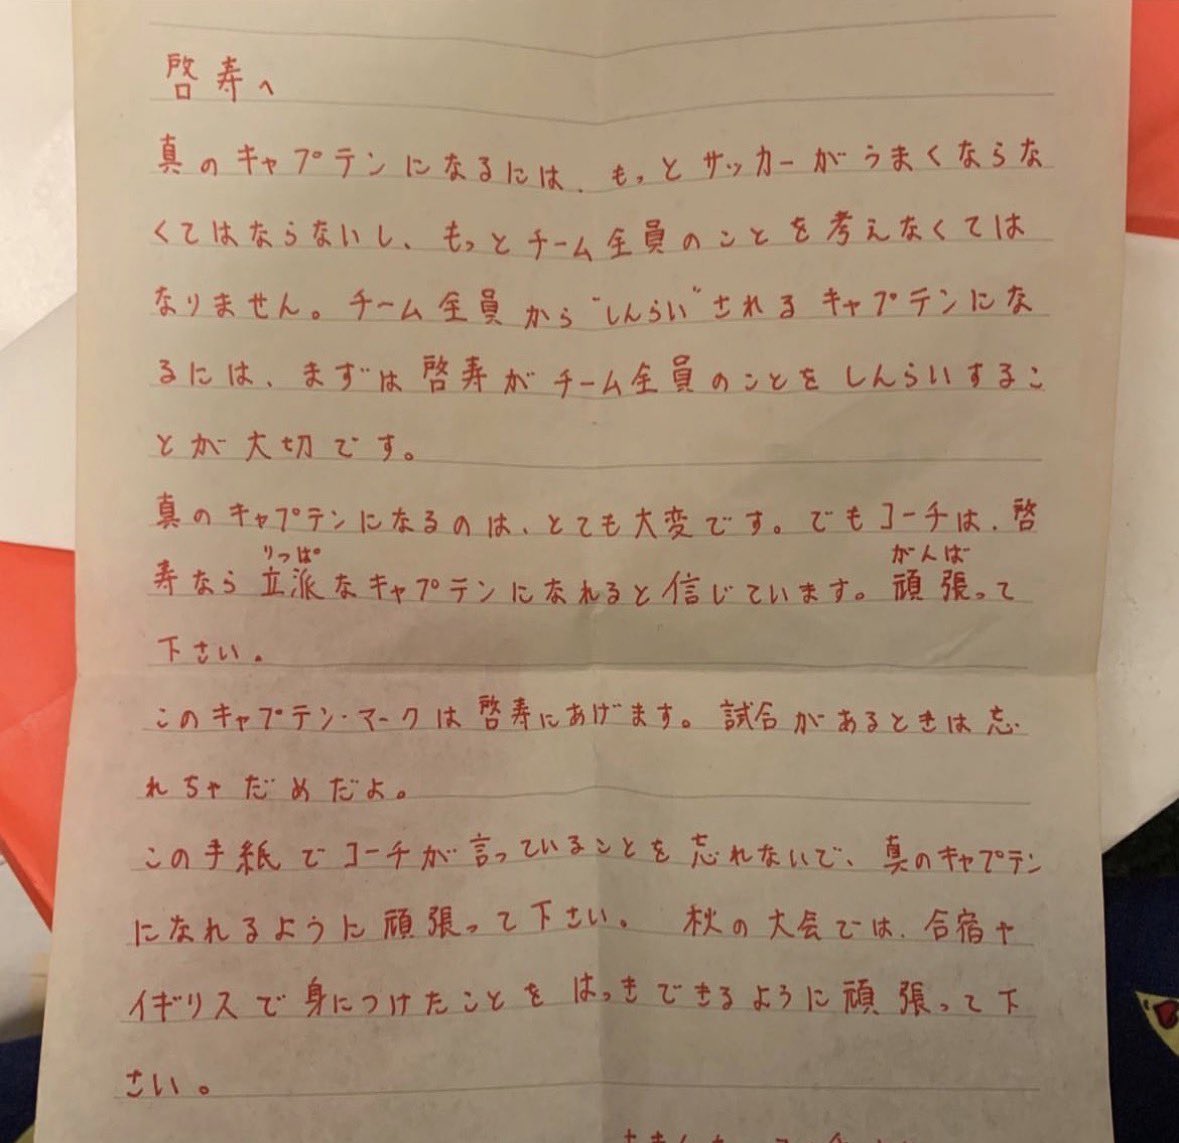 啓寿へ
真のキャプテンになるには、もっとサッカーがうまくならな
くてはならないし、もっとチーム全員のことを考えなくては
なりません。チーム全員から“しんらい”されるキャプテンにな
るには、まずは啓寿がチーム全員のことをしんらいするこ
とが大切です。
真のキャプテンになるのは、とても大変です。でもコーチは、啓
りっぱ がんば
寿なら立派なキャプテンになれると信じています。頑張って
下さい。
このキャプテン・マークは啓寿にあげます。試合があるときは忘
れちゃだめだよ。
この手紙でコーチが言っていることを忘れないで、真のキャプテン
になれるように頑張って下さい。 秋の大会では、合宿や
イギリスで身につけたことをはっきできるように頑張って下
さい。